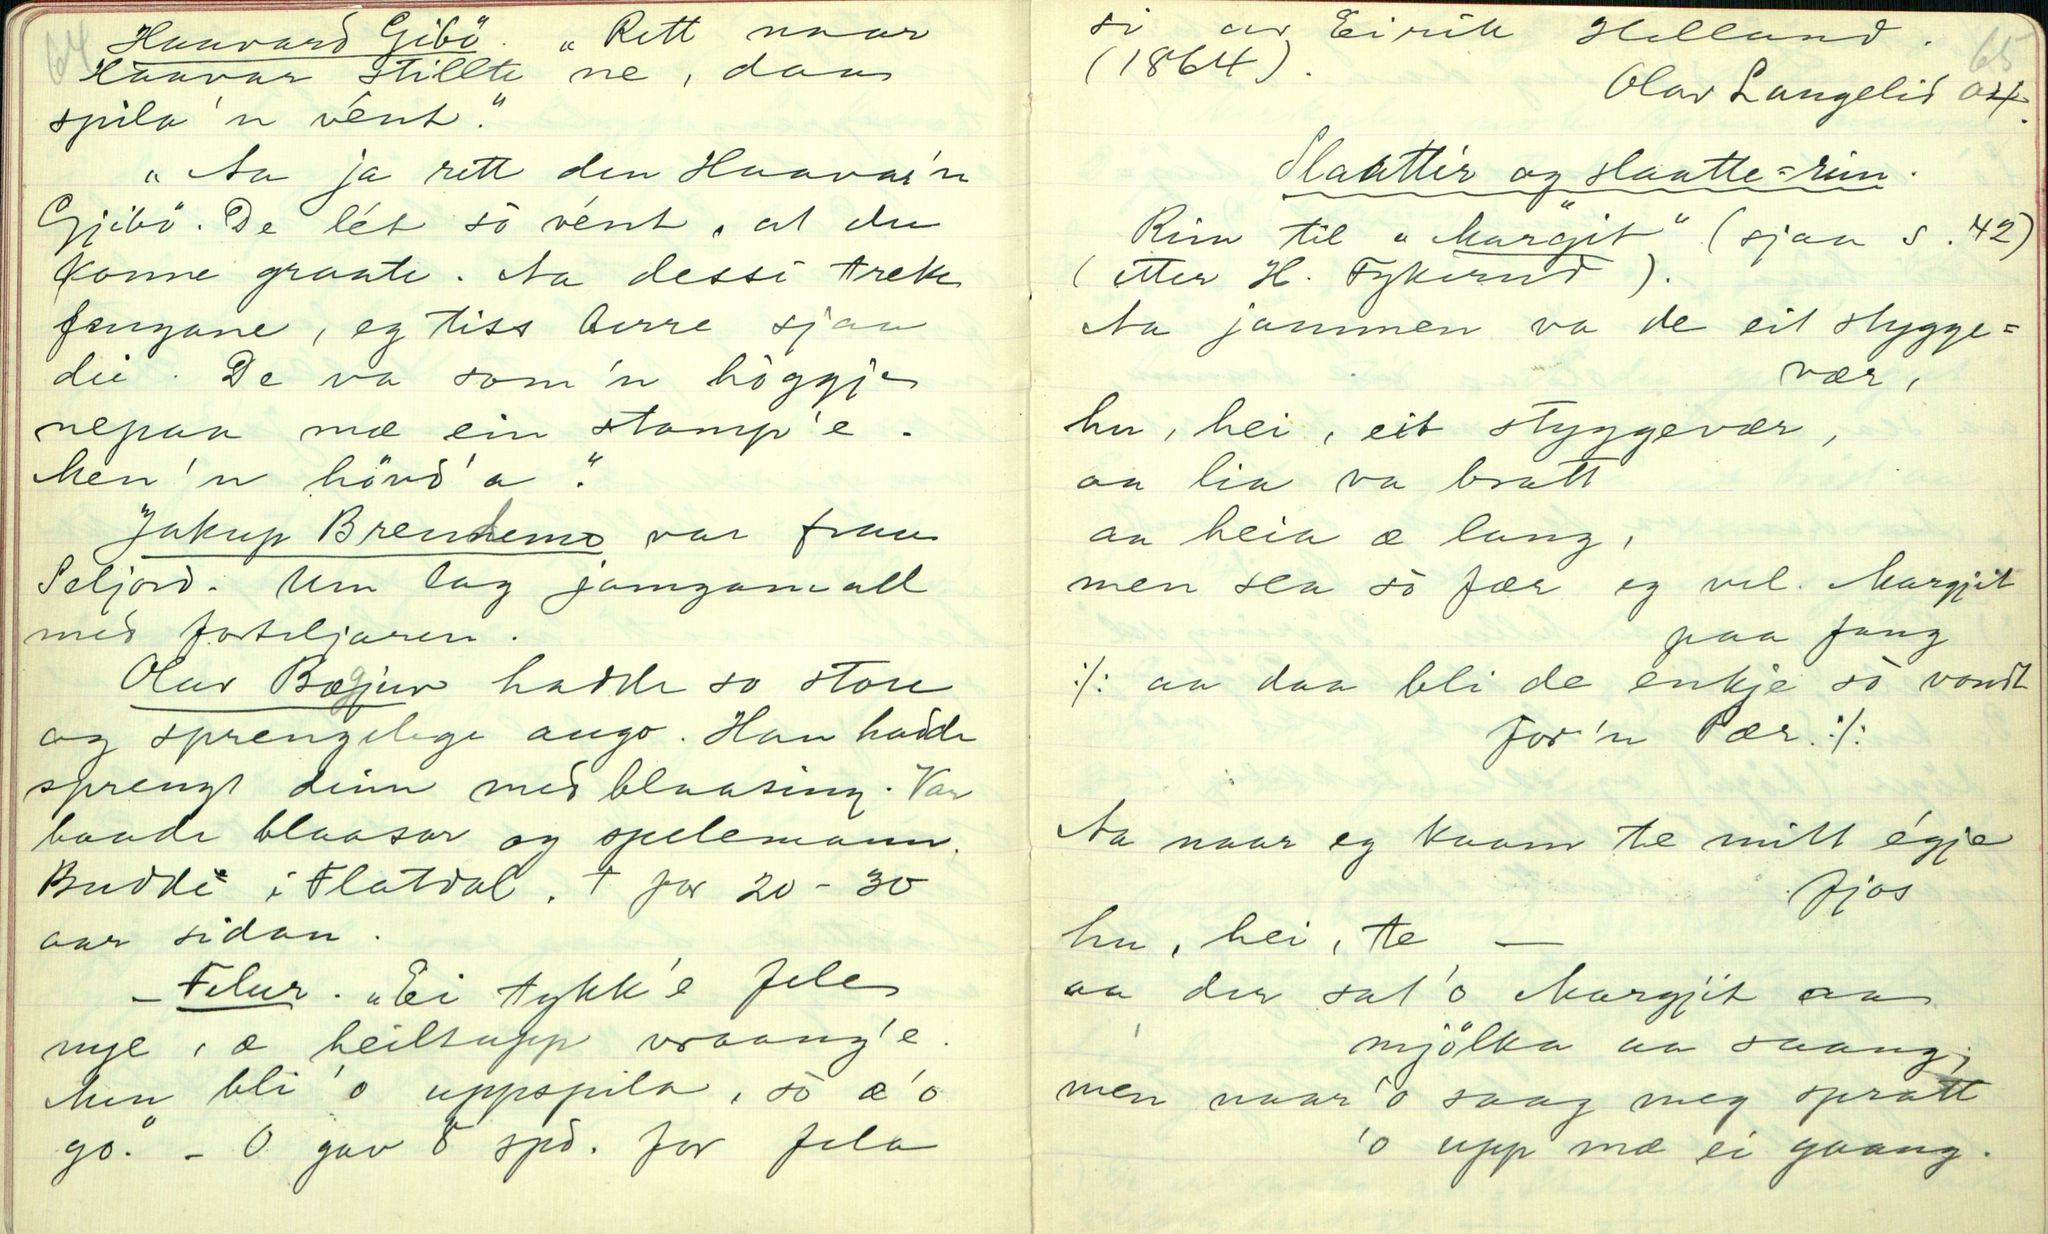 64
Haavard Gibö. „Rett naar
Haavar stillte ne, daa
spila'n vént."
„Aa ja rett den Haavar'n
Gjibö. De lét sò vént, at du
konne graate. Aa dessi trek
fengane, eg tiss berre sjaa
dei. De va som'n höggje
nepaa mæ ein stamp'e.
Men'n hövd'a".
Jakup Brendemo var fraa
Seljord. Um lag jamgamall
med forteljaren.
Olav Bægjuv hadde so store
og sprengelege augo. Han hadde
sprengt deim med blaasing. Var
baade blaasar og spelemann.
Budde i Flatdal. † for 20-30
aar sidan.
– Felur. „Ei tykk'e fele
nye, æ heiltupp vraang'e.
Men bli'o uppspila, sò æ'o
go." – O gav 8 spd. for fela
65
si av Eirik Helland.
(1864).
Olav Langelid 04.
Slaattir og slaatte=rim.
Rim til „Margit" (sjaa s. 42)
(etter H. Fykerud).
Aa jammen va de eit stygge=
vær,
hu, hei, eit styggevær,
aa lia va bratt
aa heia æ lang,
men sea sò fær eg vel Margjit
paa fang
:/: aa daa bli de enkje sò vondt
for'n Pær. :/:
Aa naar eg kaam te mitt égje
fjos
hu, hei, te —
aa der sat'o Margjit aa
mjölka aa saang,
men naar'o saag meg spratt
'o upp mæ ei gaang.